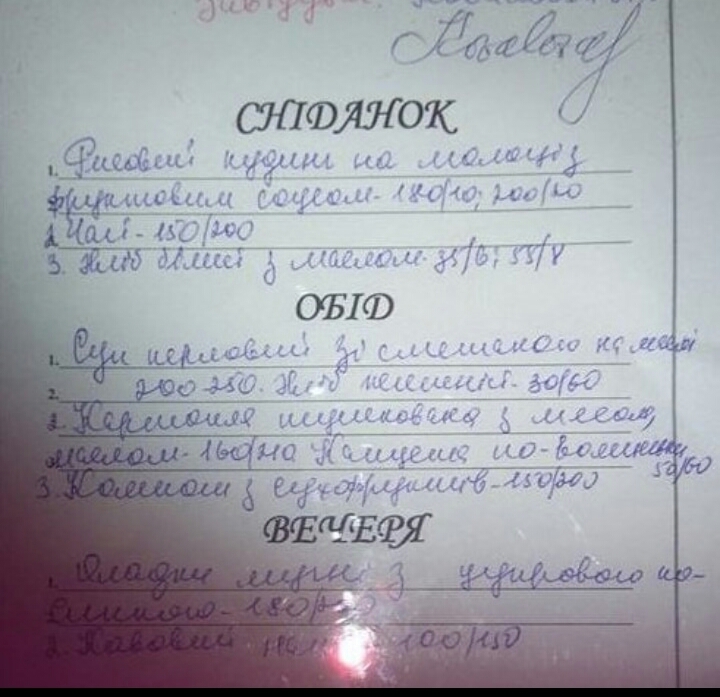 СНІДАНОК
1. Рисовий пудинг на молоці з
фруктовим соусом - 180/10; 200/20
2. Чай - 150/200
3. Хліб білий з маслом - 35/6; 55/8
ОБІД
1. Суп перловий зі сметаною на маслі
2. 200-250. Хліб пшенний - 30/60
2. Картопля тушкована з мясом,
маслом - 160/210 Капуста по-волинськи
50/60
3. Компот з сухофруктів - 150/200
ВЕЧЕРЯ
1. Оладки з цукрового по-
2. Кавовий 100/150